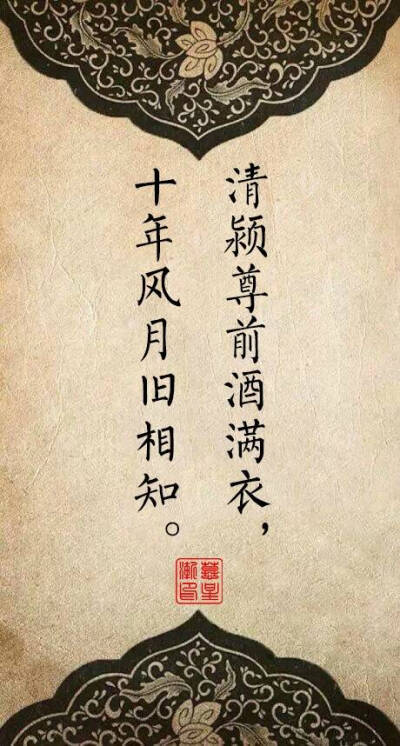 清颍尊前酒满衣，
十年风月旧相知。